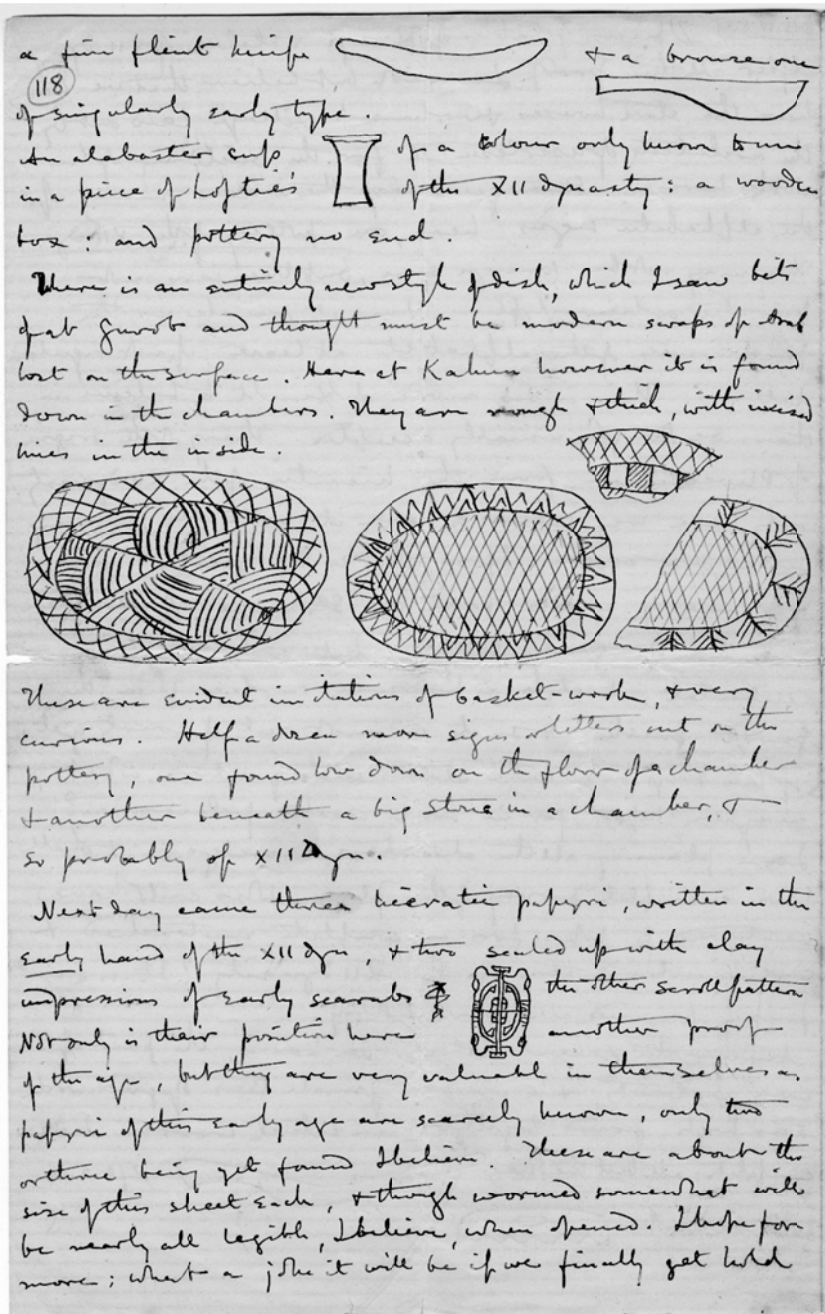 a fine flint knife & a bronze one
118
of singularly early type.
An alabaster cup of a colour only known to me
in a piece of Loftie's of the XII dynasty: a wooden
box: and pottery no end.
There is an entirely new style of dish, which I saw bits
of at Gurob and thought must be modern scraps of Arab
lost on the surface. Here at Kahun however it is found
down in the chambers. They are rough & thick, with incised
lines in the inside.
These are evident imitations of basket-work, & very
curious. Half a dozen more signs or letters cut on the
pottery, one found low down on the floor of a chamber
& another beneath a big stone in a chamber, &
so probably of XII Dyn.
Next day came three hieratic papyri, written in the
early hand of the XII dyn, & two sealed up with clay
impressions of early scarabs the other scroll pattern
Not only is their position here another proof
of the age, but they are very valuable in themselves as
papyri of this early age are scarcely known, only two
or three being yet found I believe. These are about the
size of this sheet each, & though wormed somewhat will
be nearly all legible, I believe, when opened. I hope for
more; what a joke it will be if we finally get hold